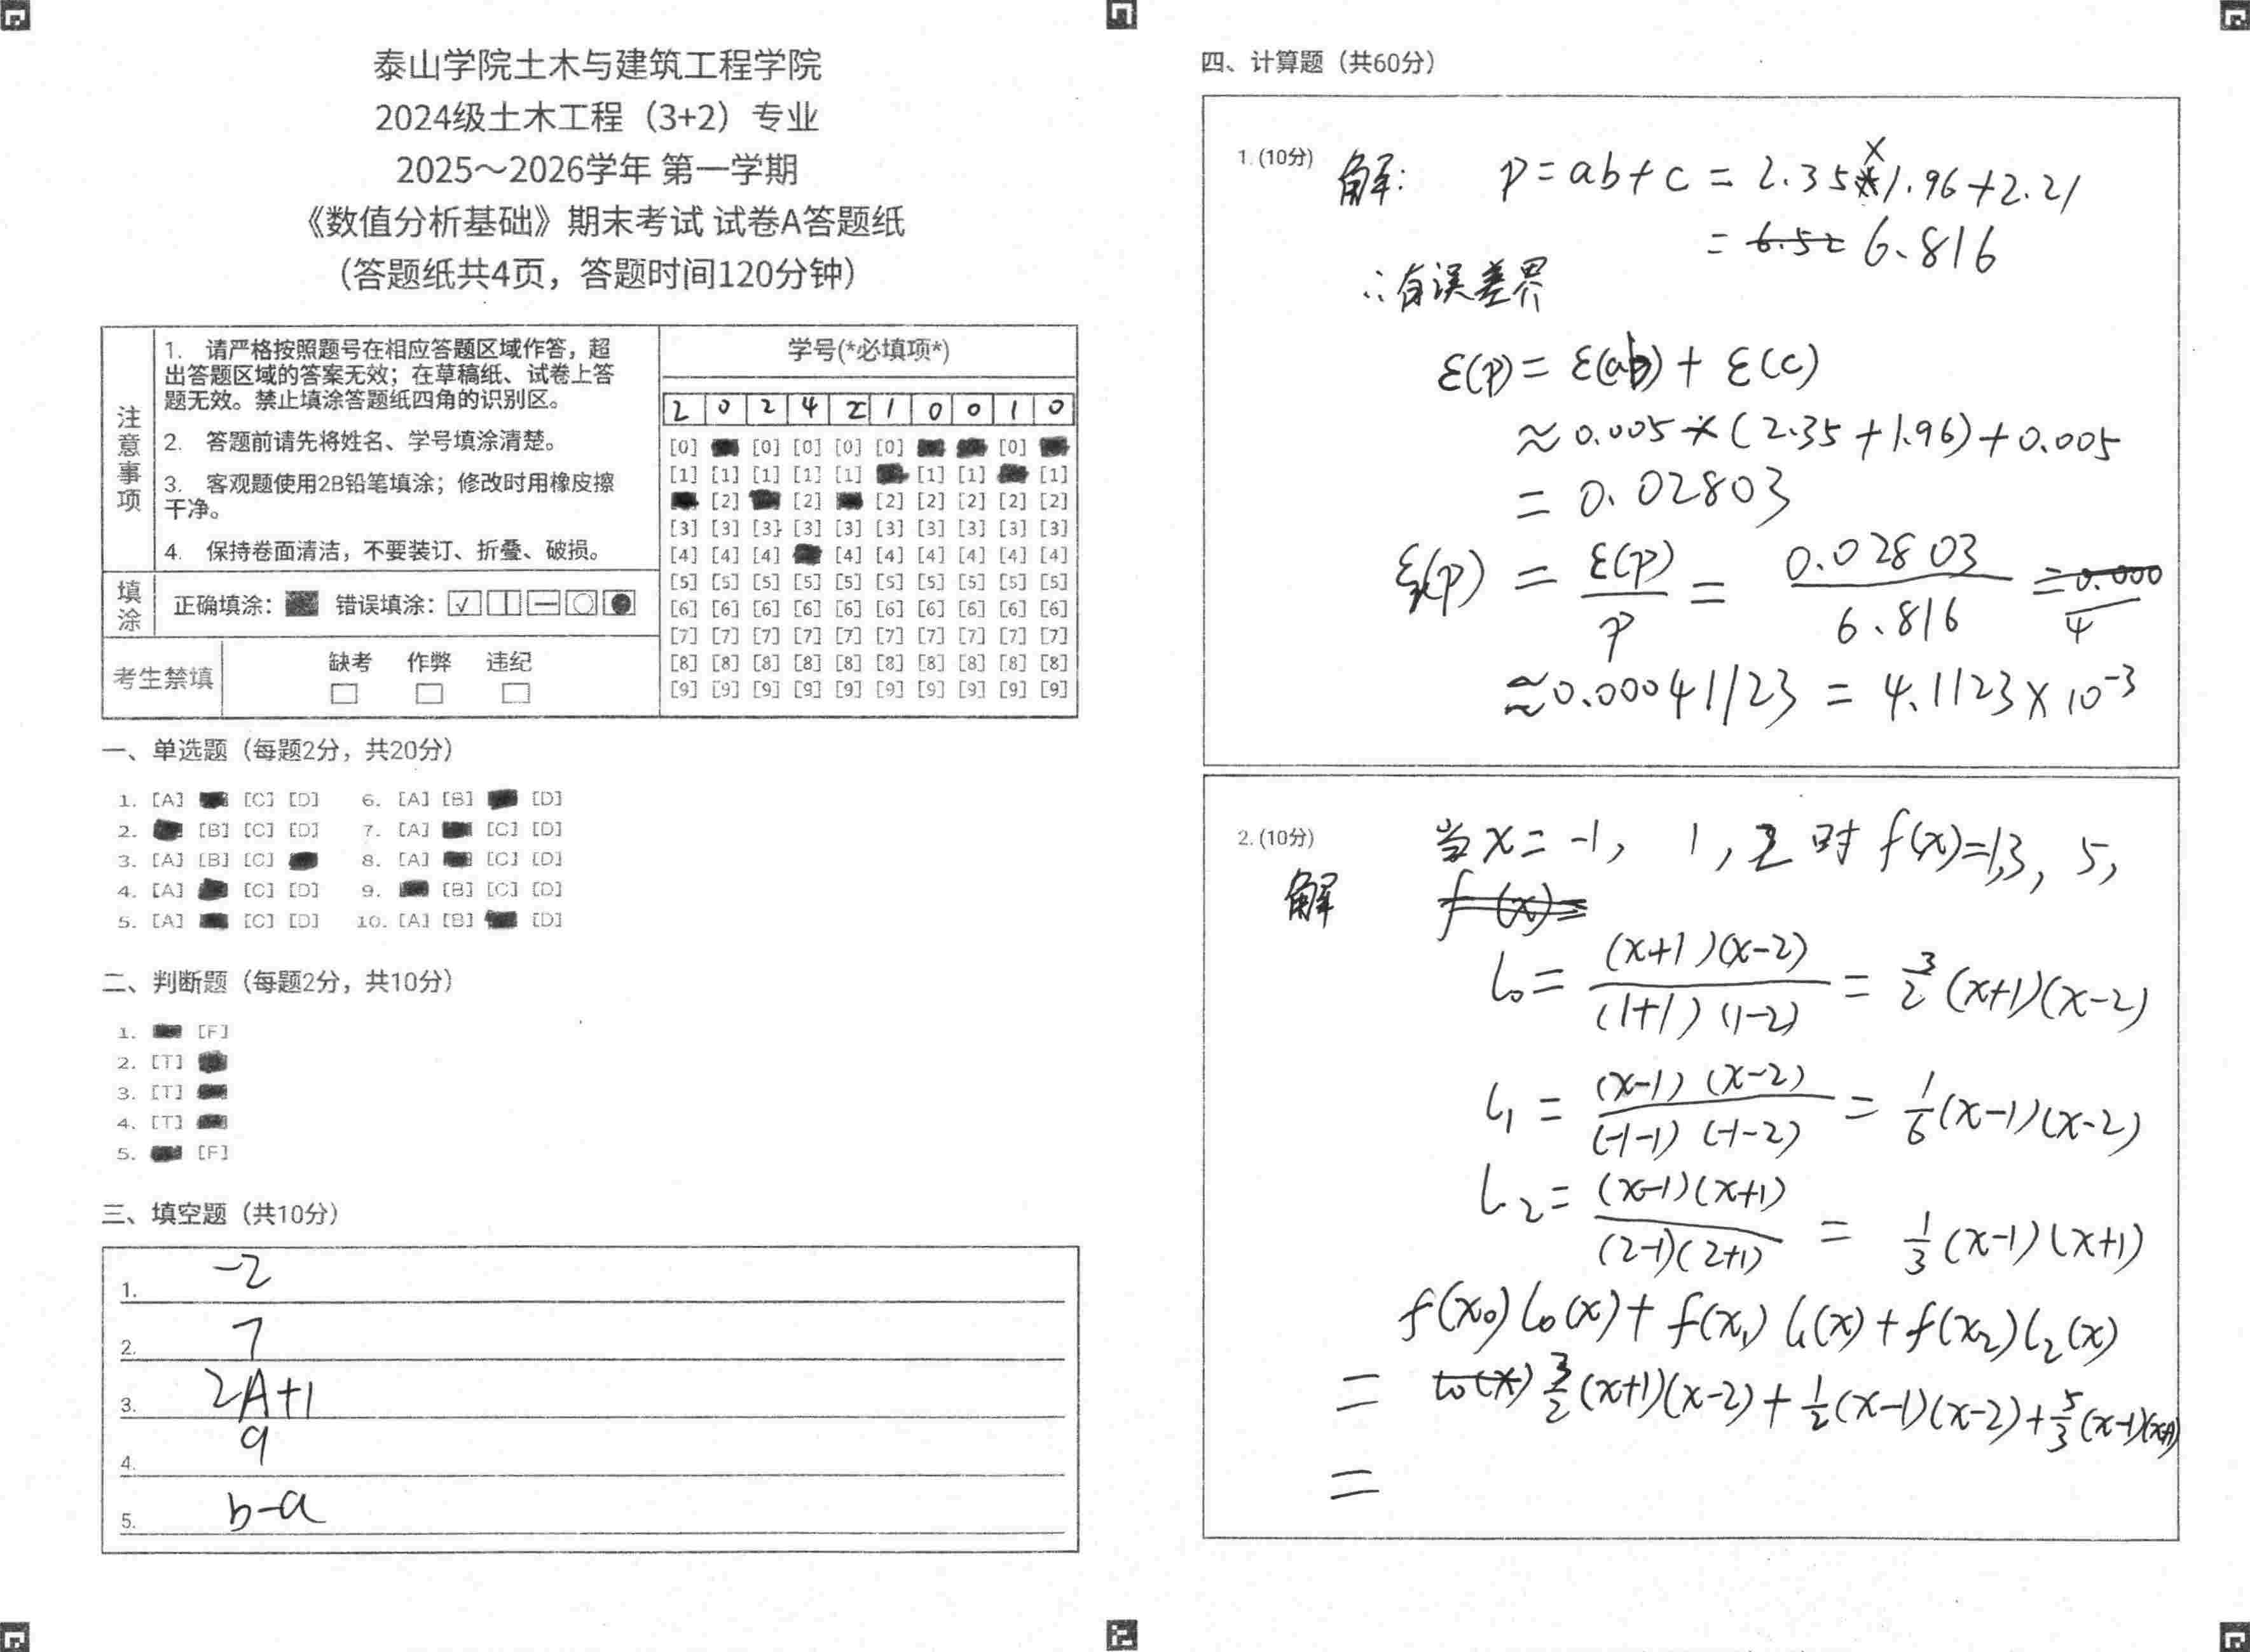 泰山学院土木与建筑工程学院
2024级土木工程（3+2）专业
2025～2026学年 第一学期
《数值分析基础》期末考试 试卷A答题纸
（答题纸共4页，答题时间120分钟）
注意事项
1. 请严格按照题号在相应答题区域作答，超
出答题区域的答案无效；在草稿纸、试卷上答
题无效。禁止填涂答题纸四角的识别区。
2. 答题前请先将姓名、学号填涂清楚。
3. 客观题使用2B铅笔填涂；修改时用橡皮擦
干净。
4. 保持卷面清洁，不要装订、折叠、破损。
填涂
正确填涂： 错误填涂：
考生禁填
缺考 作弊 违纪
学号(*必填项*)
2 0 2 4 2 1 0 0 1 0
[0] [0] [0] [0] [0] [0]
[1] [1] [1] [1] [1] [1] [1] [1]
[2] [2] [2] [2] [2] [2] [2]
[3] [3] [3] [3] [3] [3] [3] [3] [3] [3]
[4] [4] [4] [4] [4] [4] [4] [4] [4]
[5] [5] [5] [5] [5] [5] [5] [5] [5] [5]
[6] [6] [6] [6] [6] [6] [6] [6] [6] [6]
[7] [7] [7] [7] [7] [7] [7] [7] [7] [7]
[8] [8] [8] [8] [8] [8] [8] [8] [8] [8]
[9] [9] [9] [9] [9] [9] [9] [9] [9] [9]
一、单选题（每题2分，共20分）
1. [A] [C] [D] 6. [A] [B] [D]
2. [B] [C] [D] 7. [A] [C] [D]
3. [A] [B] [C] 8. [A] [C] [D]
4. [A] [C] [D] 9. [B] [C] [D]
5. [A] [C] [D] 10. [A] [B] [D]
二、判断题（每题2分，共10分）
1. [F]
2. [T]
3. [T]
4. [T]
5. [F]
三、填空题（共10分）
1. -2
2. 7
3. 2A+1
4. 9
5. b-a
四、计算题（共60分）
1. (10分) 解: p=ab+c = 2.35×1.96+2.21
= 6.52 6.816
∴有误差界
ε(p) = ε(ab) + ε(c)
≈ 0.005 × (2.35+1.96)+0.005
= 0.02803
εr(p) = ε(p)/p = 0.02803/6.816 = 0.000
≈0.00041123 = 4.1123×10⁻³
2. (10分) 当x= -1, 1, 2 时 f(x)=1,3, 5,
解 f(x)=
l₀= (x+1)(x-2)/(1+1)(1-2) = 3/2 (x+1)(x-2)
l₁ = (x-1)(x-2)/(-1-1)(-1-2) = 1/6 (x-1)(x-2)
l₂= (x-1)(x+1)/(2-1)(2+1) = 1/3 (x-1)(x+1)
f(x₀)l₀(x)+ f(x₁) l₁(x)+f(x₂)l₂(x)
= l₀(x) 3/2 (x+1)(x-2)+ 1/2 (x-1)(x-2)+ 5/3 (x-1)(x+1)
=